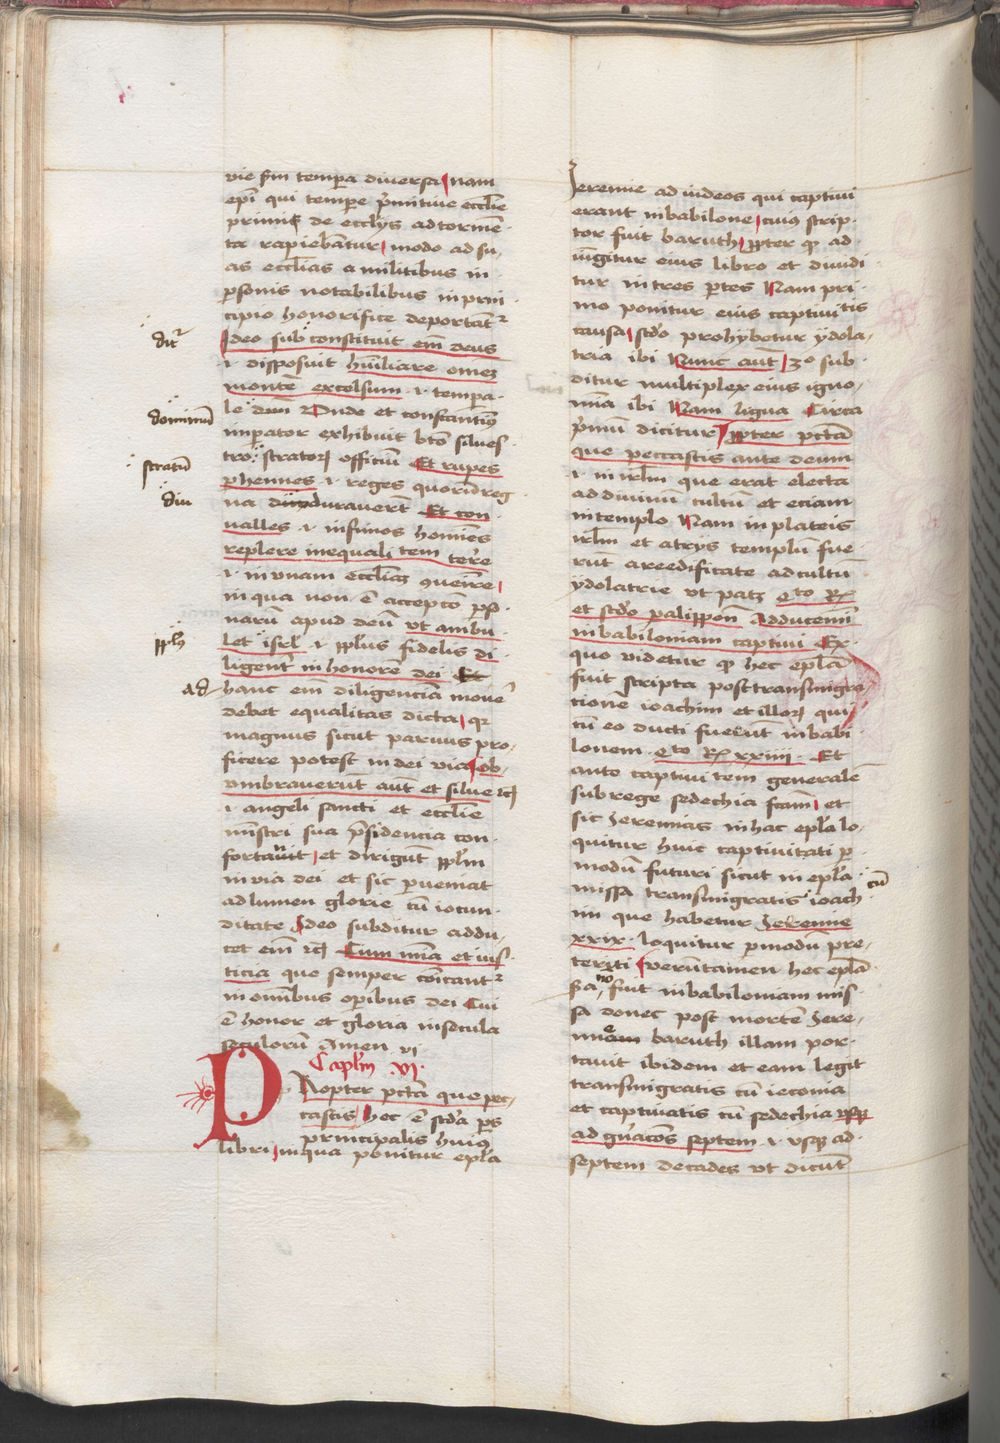 vie sm̄ tempera diuersa nam
ep̄i qui tempe p̄mitiue eccl̄ie
primis de eccl̄ijs ad tormē
ta rapiebantur modo ad su
as eccl̄ias a militibus in
p̄sonis notabilibus in prin
cipio honorifice deportāt᷑
Ideo sub constituit em̄ deus
.i. disposuit hūiliare omēs
montē excelsum .i. tempa
le dūm Vnde et constantiꝰ
imperator exhibuit bt̄o silues
tro stratoꝝ officiū Et rupes
phennes .i. reges quoꝝ reg
na diu durauerūt Et con
ualles .i. infimos homīes
replere inequalitem terr̄e
.i. in vnam eccl̄iaꝫ
in qua non ē accepto p̄so
narū apud deū vt ambu
let isrl̄ .i. pp̄lus fidelis di
ligent᷑ in honorē dei Et
hanc em̄ diligenciā mouē
debet equalitas dicta qꝛ
magnus sicut paruus pro
ficere potest in dei via Ob
vmbrauerūt aut̄ et silue ⁊c̄
.i. angeli sancti et eccl̄ie
mīstri sua p̄sidencia con
fortauīt et dirigūt pp̄lm
in via dei et sic p̄ueniat
ad lumen glorie cū iocun
ditate Ideo subditur addu
cet em̄ ⁊c̄ Cum mīa et ius
ticia que semper cōicant᷑
in omībus op̄ibus dei Cui
ē honor et gloria in secula
seculorū Amen vi
Capl̄m .vi.
PRopter pct̄a que pec
castis hec ē scd̄a ps
principalis huiꝰ
libri in qua ponitur epl̄a
dr᷑
dominū
stratū
diu
pp̄ls
ad
Jeremie ad iudeos qui captiui
erant in babilone cuiꝰ scrip
tor fuit baruth pp̄ter qꝫ ad
iūgitur eius libro et diuidi
tur in tres p̄tes Nam pri
mo ponitur eius captiuitis
causa scd̄o prohybetur ydola
tria ibi Nunc aut̄ 3º sub
ditur multiplex eius igno
mīa ibi Nam ligua Circa
p̄mū dicitur pp̄ter pct̄a
que peccastis ante deum
.i. in irl̄m que erat electa
ad diuinū cultū et eciam
in templo Nam in plateis
irl̄m et atrijs templū fue
rūt aree dificate ad cultū
ydolatrie vt patꝫ qto Rꝫ
et scd̄o palippen̄ Adducemī
in babiloniam captiui Ex
quo videtur qꝫ hec epl̄a
fuit scripta post transmigra
tionē ioachim et illoꝝ qui
cū eo ducti fuerūt in babi
lonem qto Rꝫ xxiiii Et
ante captiuitem generalē
sub rege sedechia fcām et
sic Jeremias in hac epl̄a lo
quitur huic captiuitati p̄
modū futuri sicut in epl̄a
missa transmigratis cū ioach
im que habetur Jeremie
xxix loquitur p̄ modū pre
teriti verūtamen hec epl̄a
nō fuit in babiloniam mis
sa donec post mortē Jere
mie baruth illam por
tauit ibidem et eam legit
transmigratis cū ieconia
et captiuatis cū sedechia vsqꝫ
ad gn̄acōes septem .i. vsqꝫ ad
septem decades vt dicūt
cū